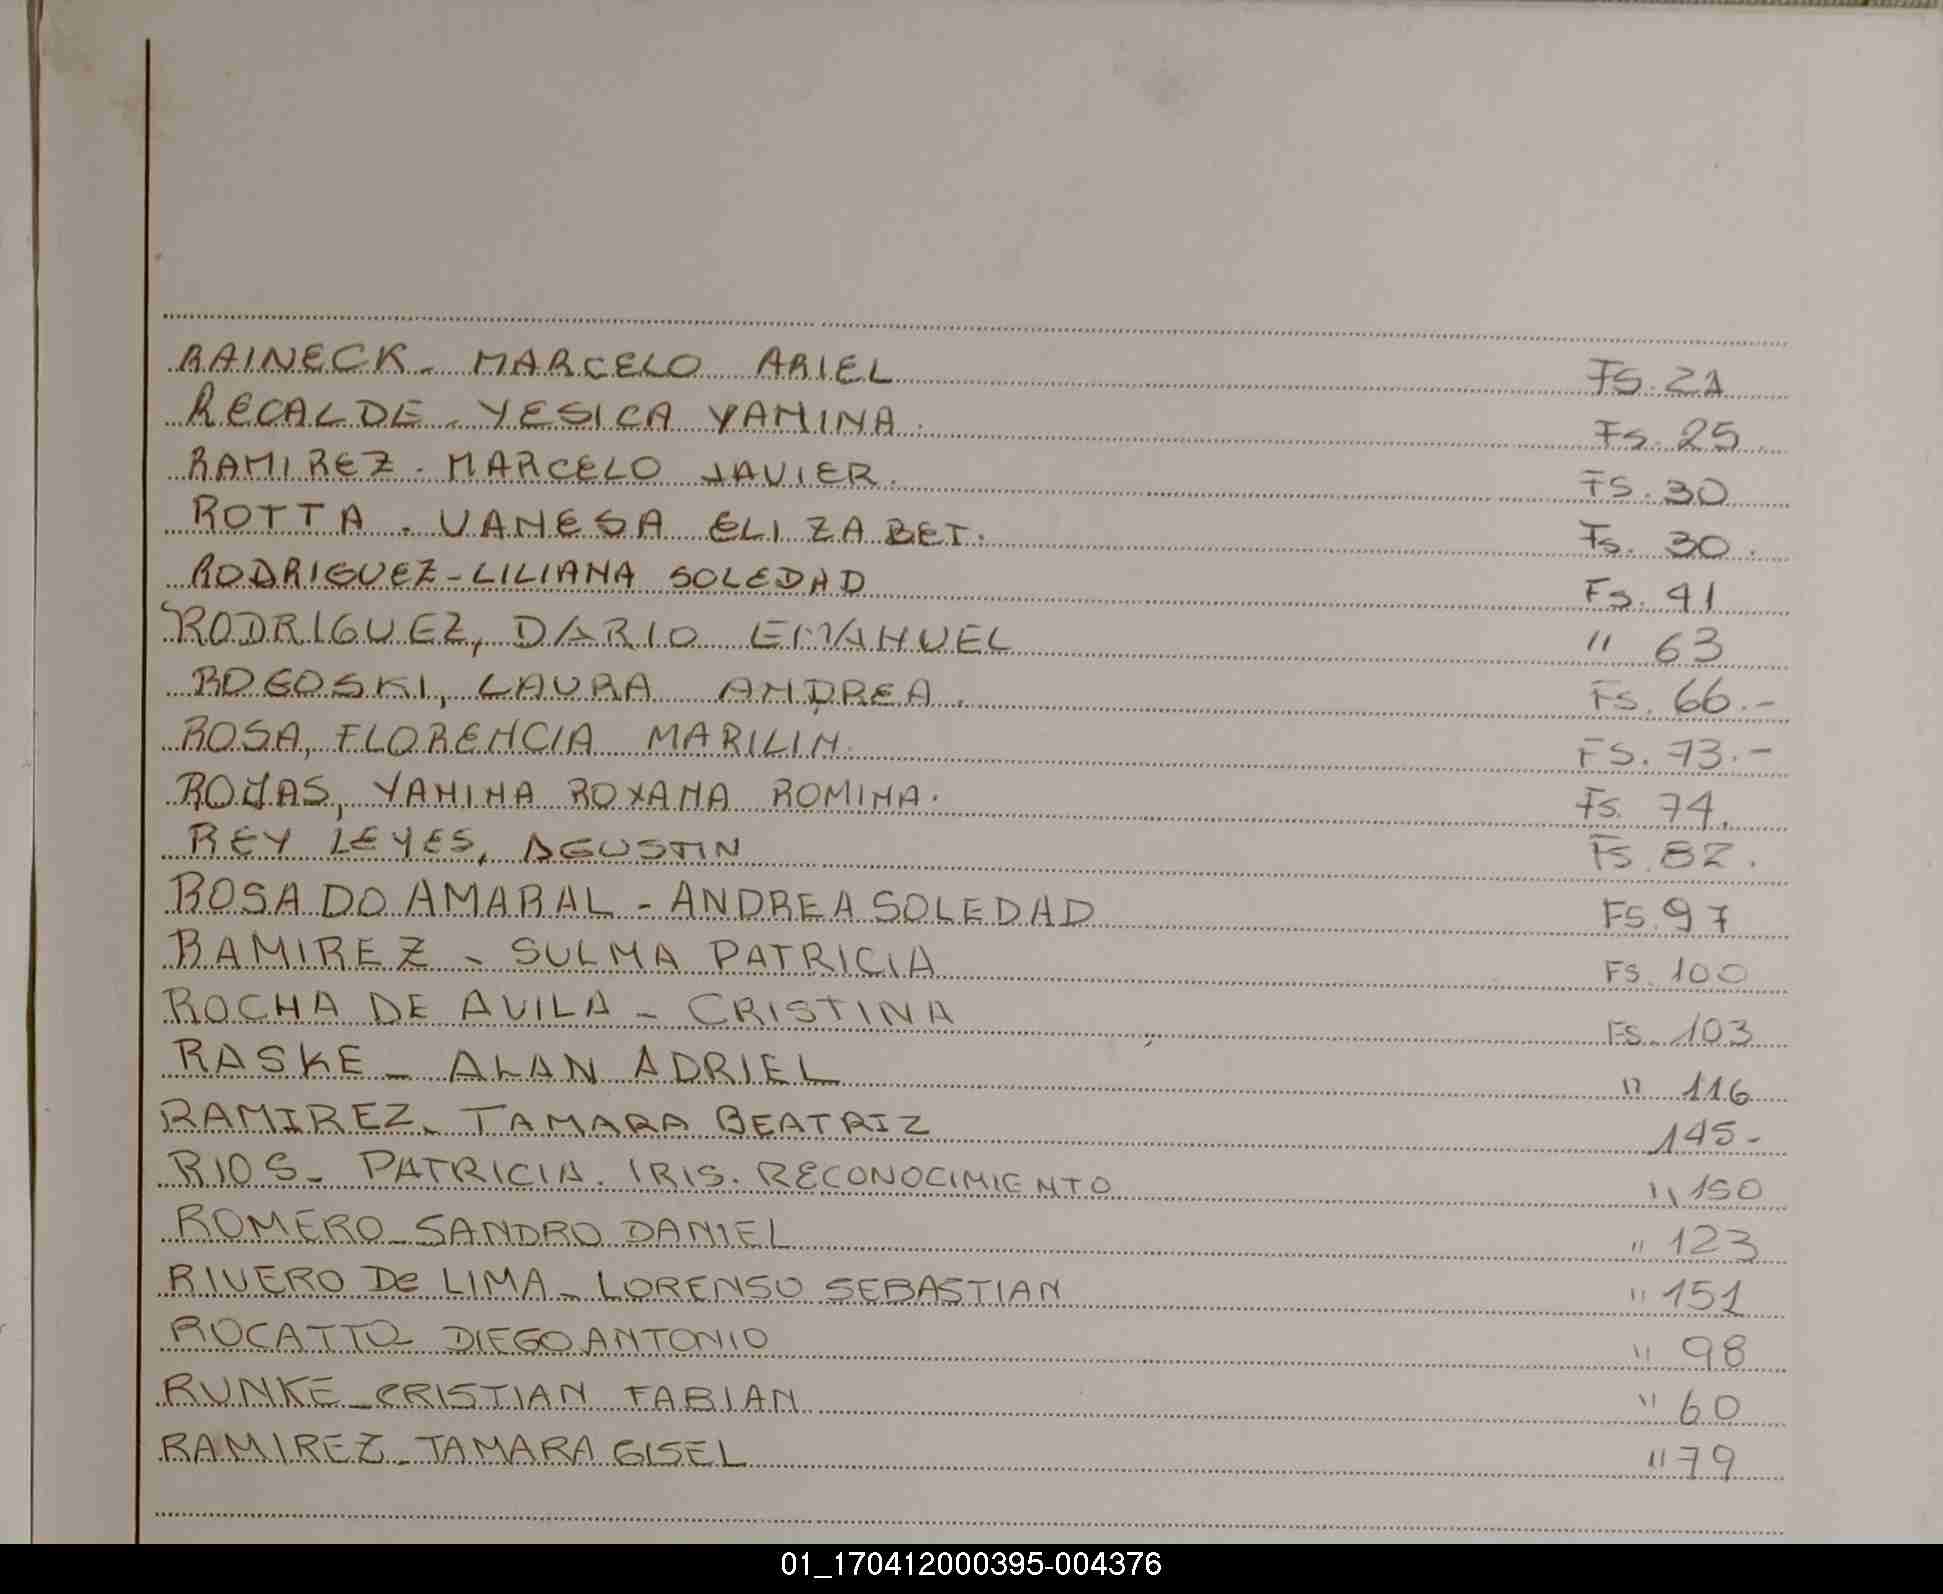 RAINECK - MARCELO ARIEL Fs. 21
RECALDE - YESICA YAMINA. Fs. 25.
RAMIREZ - MARCELO JAVIER. Fs. 30
ROTTA - VANESA ELIZABET. Fs. 30.
RODRIGUEZ - LILIANA SOLEDAD Fs. 41
RODRIGUEZ, DARIO EMANUEL " 63
ROGOSKI, LAURA ANDREA. Fs. 66.-
ROSA, FLORENCIA MARILIN. FS. 73.-
ROJAS, YANINA ROXANA ROMINA. Fs. 74.
REY LEYES, AGUSTIN Fs. 82.
ROSA DO AMARAL - ANDREA SOLEDAD FS. 97
RAMIREZ - SULMA PATRICIA FS. 100
ROCHA DE AVILA - CRISTINA FS. 103
RASKE - ALAN ADRIEL " 116
RAMIREZ - TAMARA BEATRIZ 145-
RIOS - PATRICIA. IRIS. RECONOCIMIENTO " 150
ROMERO - SANDRO DANIEL " 123
RIVERO De LIMA - LORENSO SEBASTIAN " 151
ROCATTO DIEGO ANTONIO " 98
RUNKE - CRISTIAN FABIAN " 60
RAMIREZ - TAMARA GISEL " 79
01_170412000395-004376